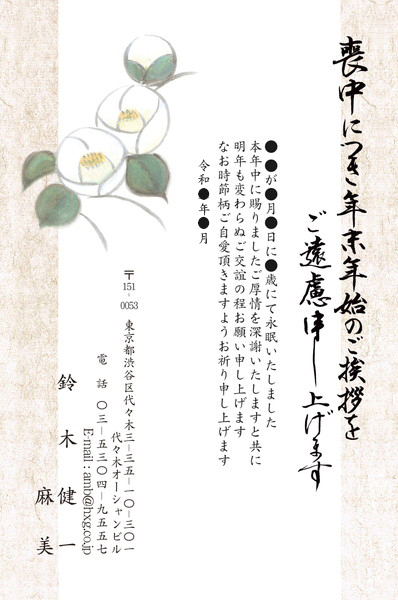 喪中につき年末年始のご挨拶を
ご遠慮申し上げます
●●が●月●日に●歳にて永眠いたしました
本年中に賜りましたご厚情を深謝いたしますと共に
明年も変わらぬご交誼の程お願い申し上げます
なお時節柄ご自愛頂きますようお祈り申し上げます
令和●年●月
〒151-0053 東京都渋谷区代々木三-三五-一〇-三〇一
代々木オーシャンビル
電話 〇三-五三〇四-九五五七
E-mail : amb@hxg.co.jp
鈴木 健一
麻美